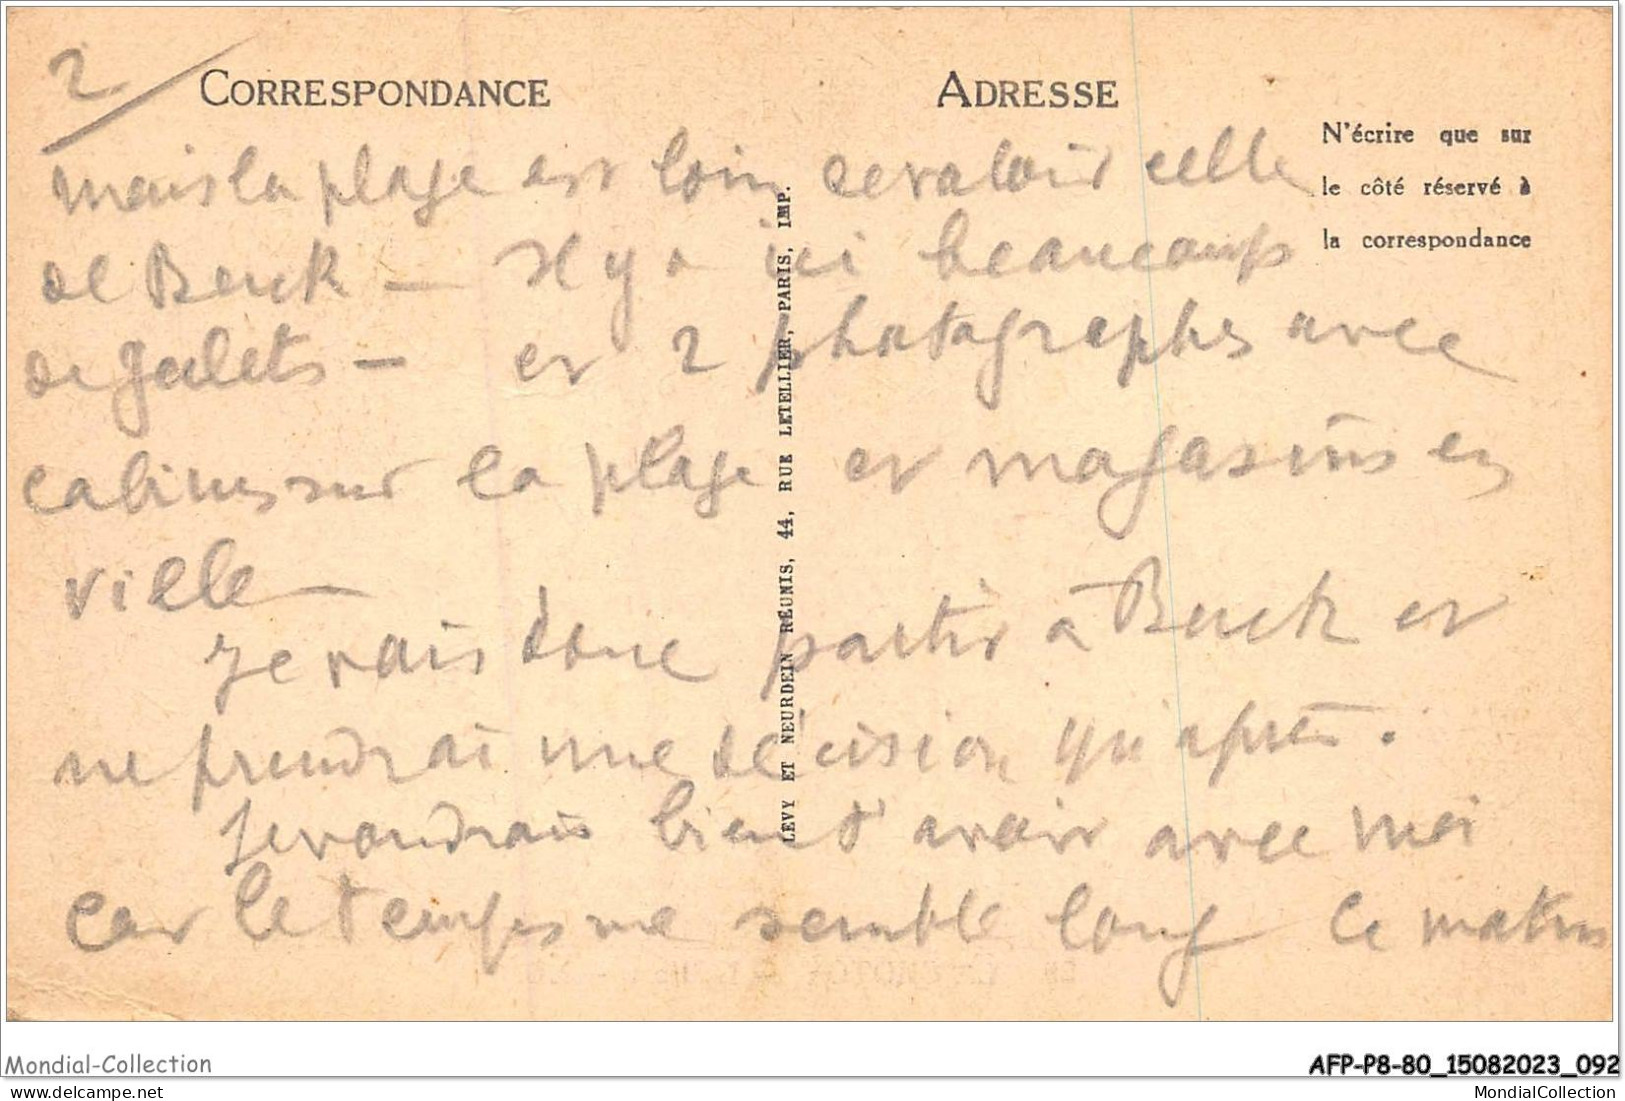 2
CORRESPONDANCE
ADRESSE
N'écrire que sur
le côté réservé à
la correspondance
mais la plage est loin de valoir celle
de Berck — Il y a ici beaucoup
de galets — et 2 photographes avec
cabines sur la plage et magasins en
ville —
Je vais donc partir à Berck et
ne prendrai une décision qu'après.
Je voudrais bien t'avoir avec moi
car le temps me semble long Ce matin
LEVY ET NEURDEIN RÉUNIS, 44, RUE LETELLIER, PARIS, IMP.
Mondial-Collection
AFP-P8-80_15082023_092
MondialCollection.com
MondialCollection